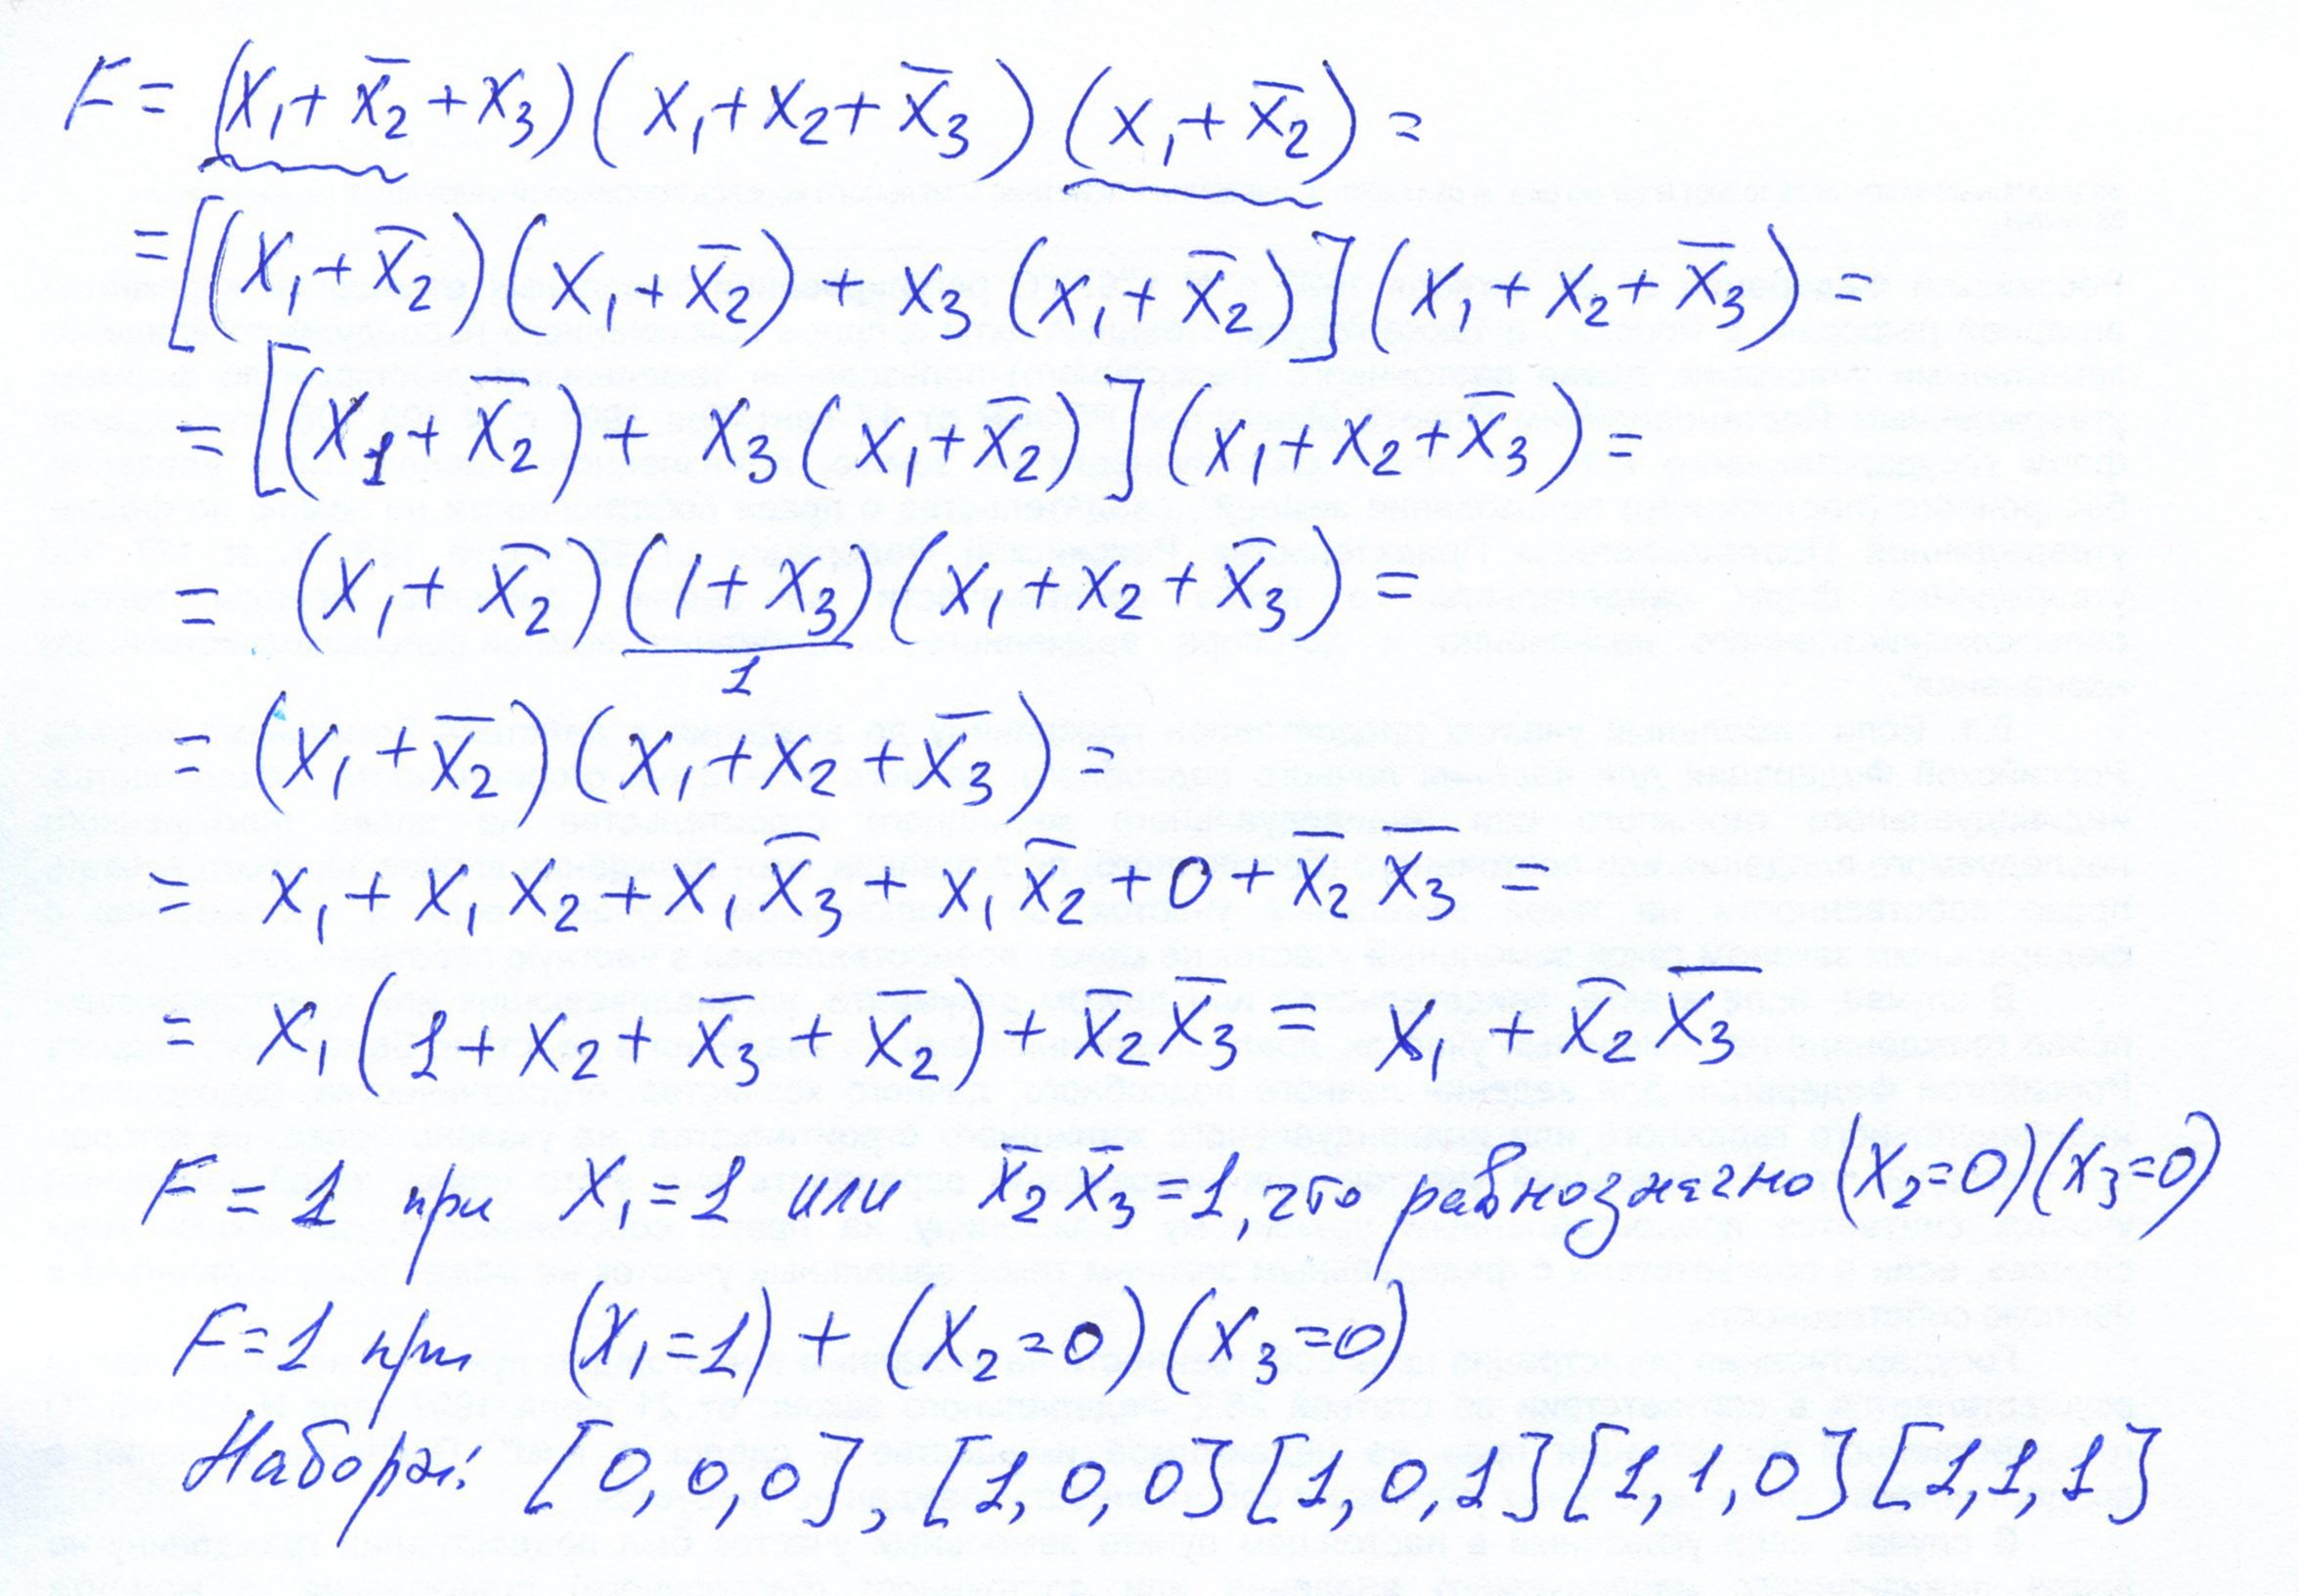 F = (x₁ + x̄₂ + x₃)(x₁ + x₂ + x̄₃)(x₁ + x̄₂) =
= [(x₁ + x̄₂)(x₁ + x̄₂) + x₃(x₁ + x̄₂)](x₁ + x₂ + x̄₃) =
= [(x₁ + x̄₂) + x₃(x₁ + x̄₂)](x₁ + x₂ + x̄₃) =
= (x₁ + x̄₂)(1 + x₃)(x₁ + x₂ + x̄₃) =
1
= (x₁ + x̄₂)(x₁ + x₂ + x̄₃) =
= x₁ + x₁x₂ + x₁x̄₃ + x₁x̄₂ + 0 + x̄₂x̄₃ =
= x₁(1 + x₂ + x̄₃ + x̄₂) + x̄₂x̄₃ = x₁ + x̄₂x̄₃
F = 1 при x₁ = 1 или x̄₂x̄₃ = 1, это равнозначно (x₂ = 0)(x₃ = 0)
F = 1 при (x₁ = 1) + (x₂ = 0)(x₃ = 0)
Наборы: [0, 0, 0], [1, 0, 0] [1, 0, 1] [1, 1, 0] [1, 1, 1]